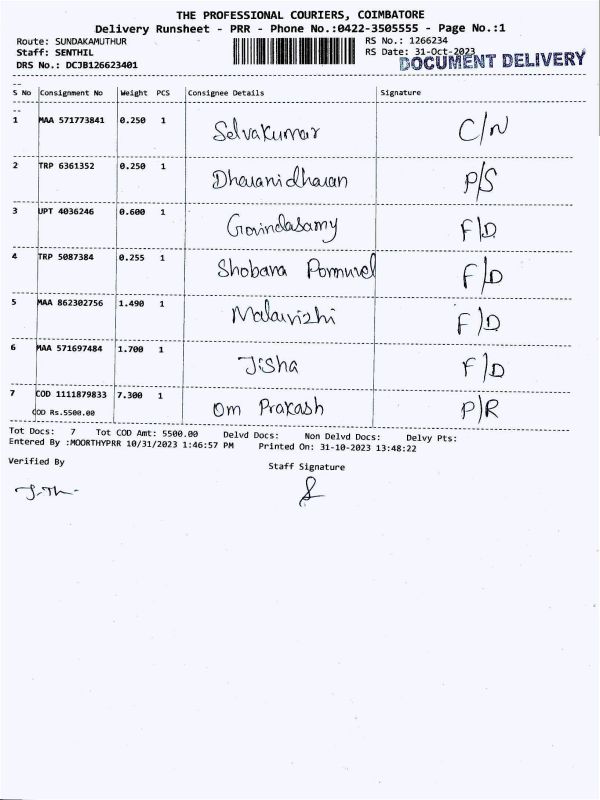 THE PROFESSIONAL COURIERS, COIMBATORE
Delivery Runsheet - PRR - Phone No.:0422-3505555 - Page No.:1
Route: SUNDAKAMUTHUR RS No.: 1266234
Staff: SENTHIL RS Date: 31-Oct-2023
DRS No.: DCJB126623401 DOCUMENT DELIVERY
S No Consignment No Weight PCS Consignee Details Signature
1 MAA 571773841 0.250 1 Selvakumar C/N
2 TRP 6361352 0.250 1 Dharanidharan P/S
3 UPT 4036246 0.600 1 Govindasamy F/D
4 TRP 5087384 0.255 1 Shobana F/D
5 MAA 862302756 1.490 1 Malarvizhi F/D
6 MAA 571697484 1.700 1 Jisha F/D
7 COD 1111879833 7.300 1 Om Prakash P/R
COD Rs.5500.00
Tot Docs: 7 Tot COD Amt: 5500.00 Delvd Docs: Non Delvd Docs: Delvy Pts:
Entered By :MOORTHYPRR 10/31/2023 1:46:57 PM Printed On: 31-10-2023 13:48:22
Verified By Staff Signature